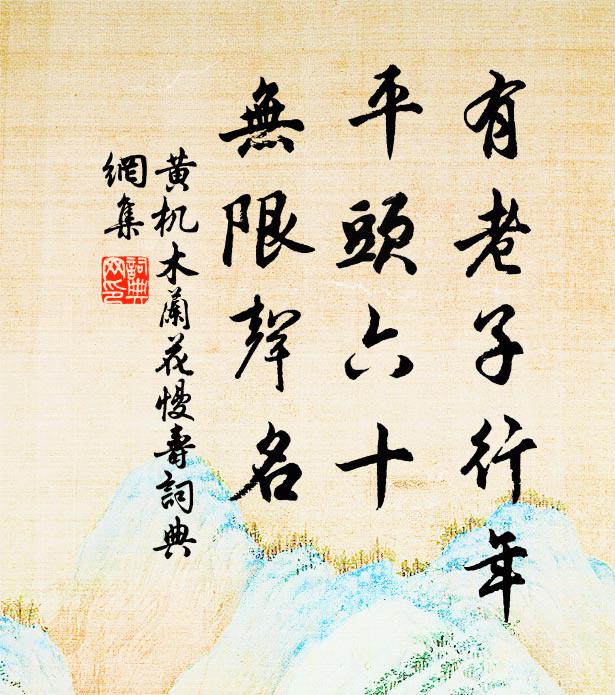 有老子行年
平頭六十
無限聲名
黄机木蘭花慢壽詞典
網集
詞典
网印